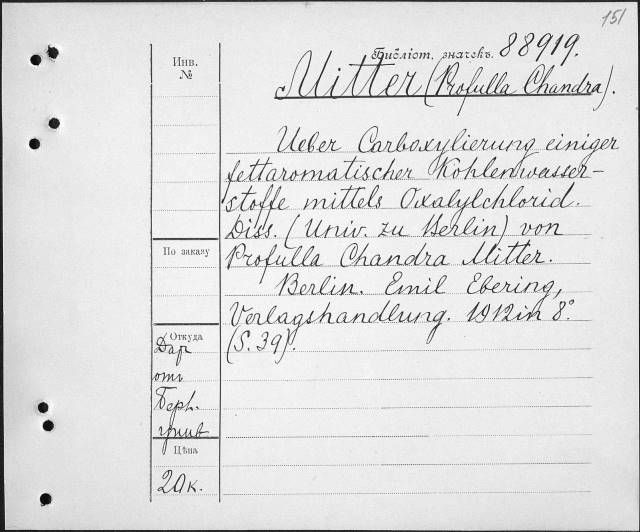 151
Библіот. значекъ. 88919.
Инв.
№
Mitter (Profulla Chandra).
Ueber Carboxylierung einiger
fettaromatischer Kohlenwasser-
stoffe mittels Oxalylchlorid.
Diss. (Univ. zu Berlin) von
Profulla Chandra Mitter.
Berlin. Emil Ebering,
Verlagshandlung. 1912 in 8°.
(S. 39).
По заказу
Откуда
Дар
отъ
Берл.
унив.
Цѣна
20к.